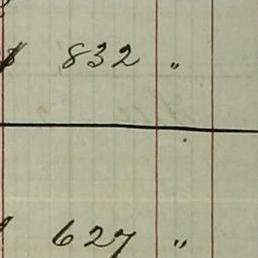 $ 832 "
627 "